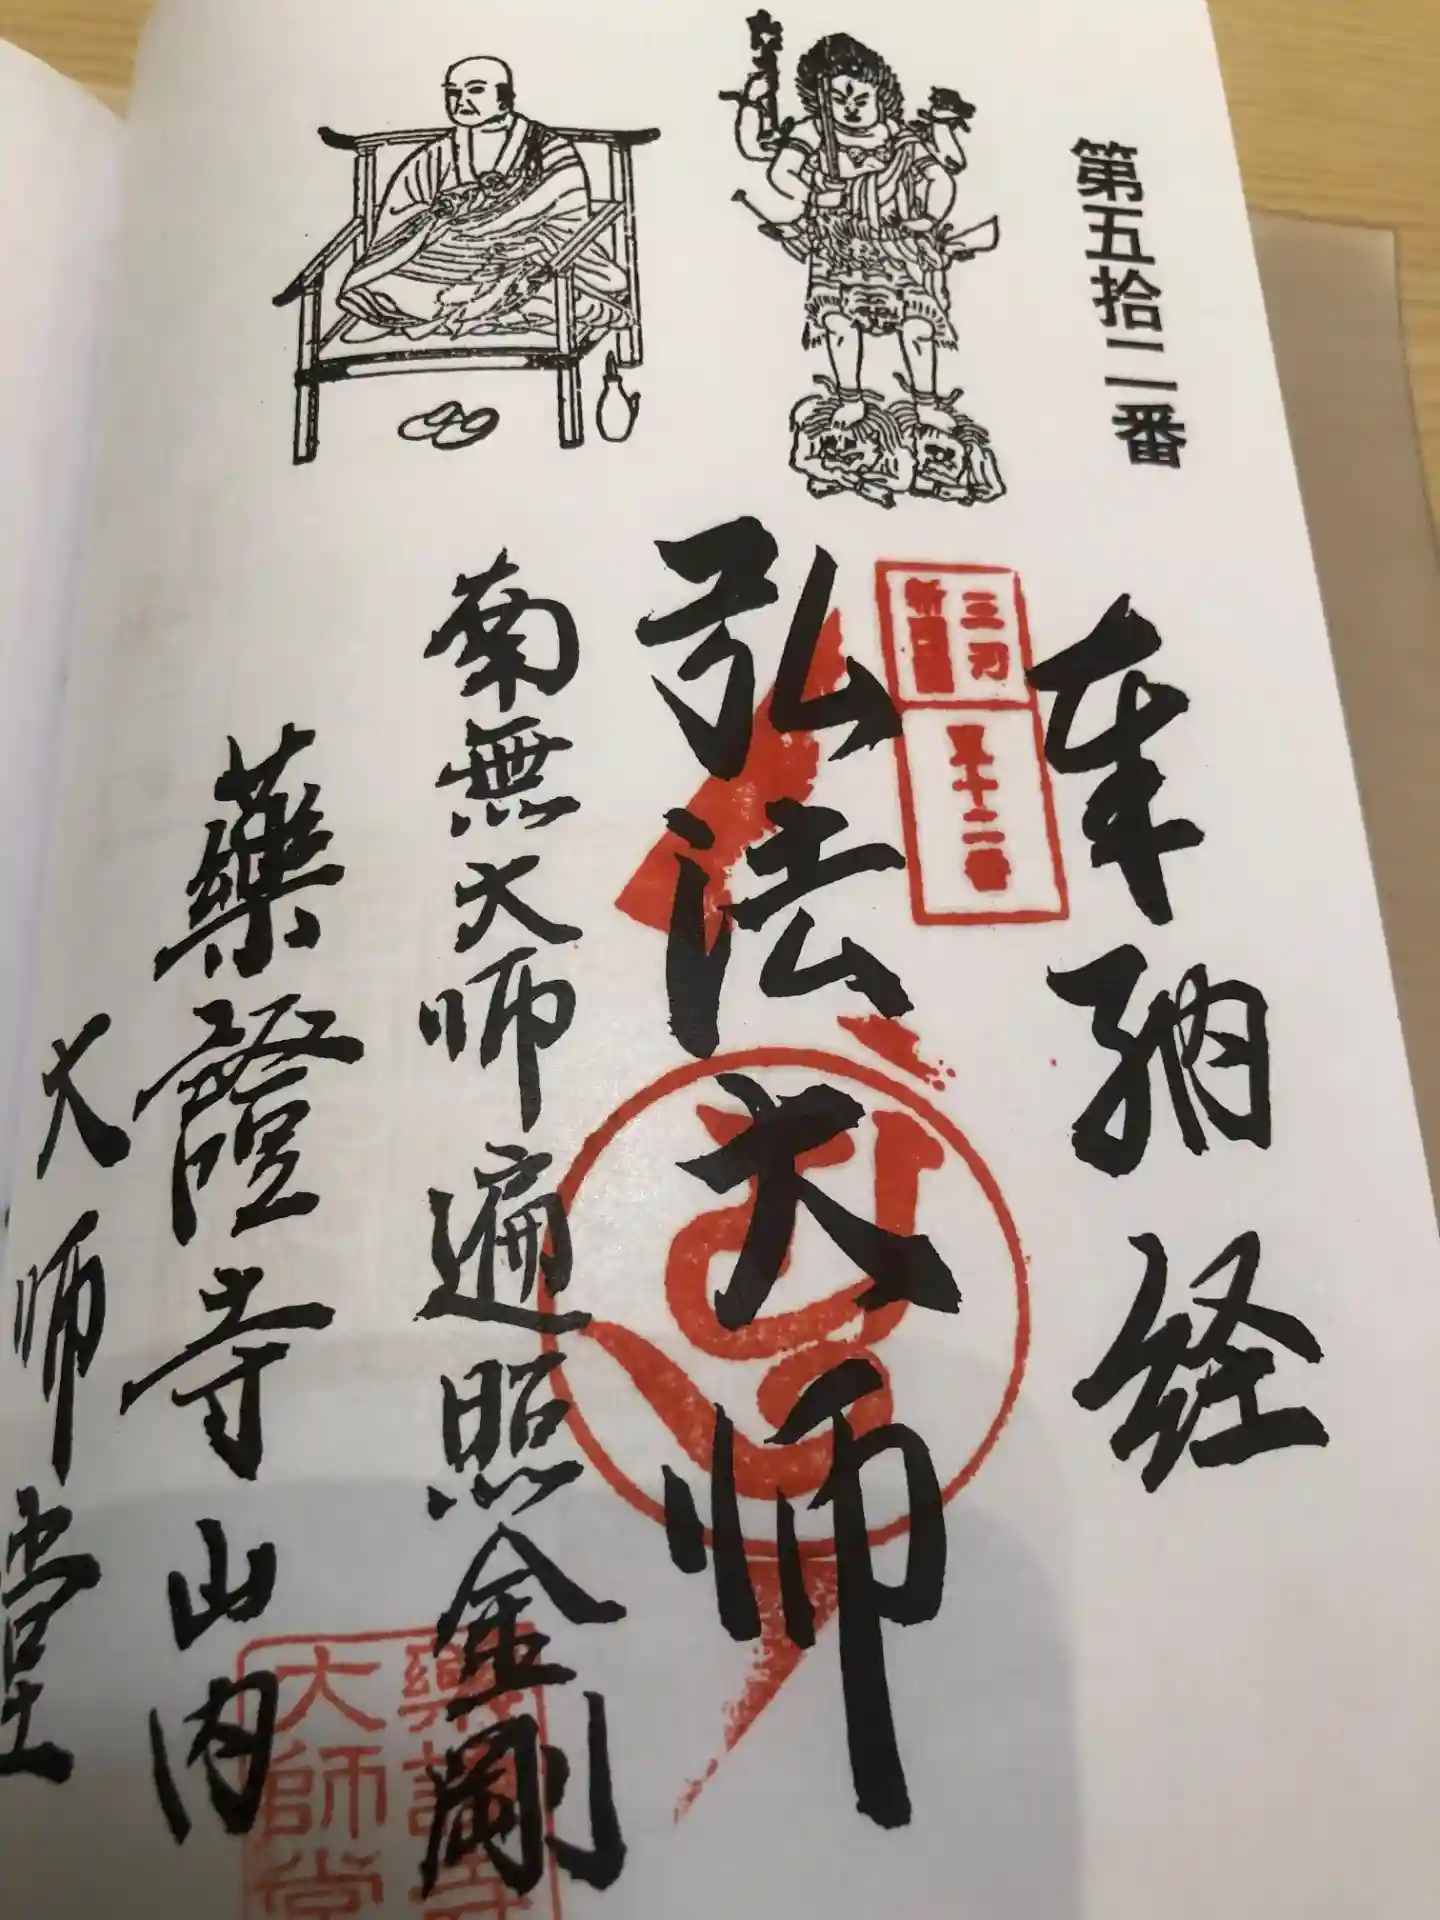 第五拾二番
奉納経
三河
新四国
五十二番
弘法大師
南無大師遍照金剛
薬證寺山内
大師堂
薬證寺
大師堂